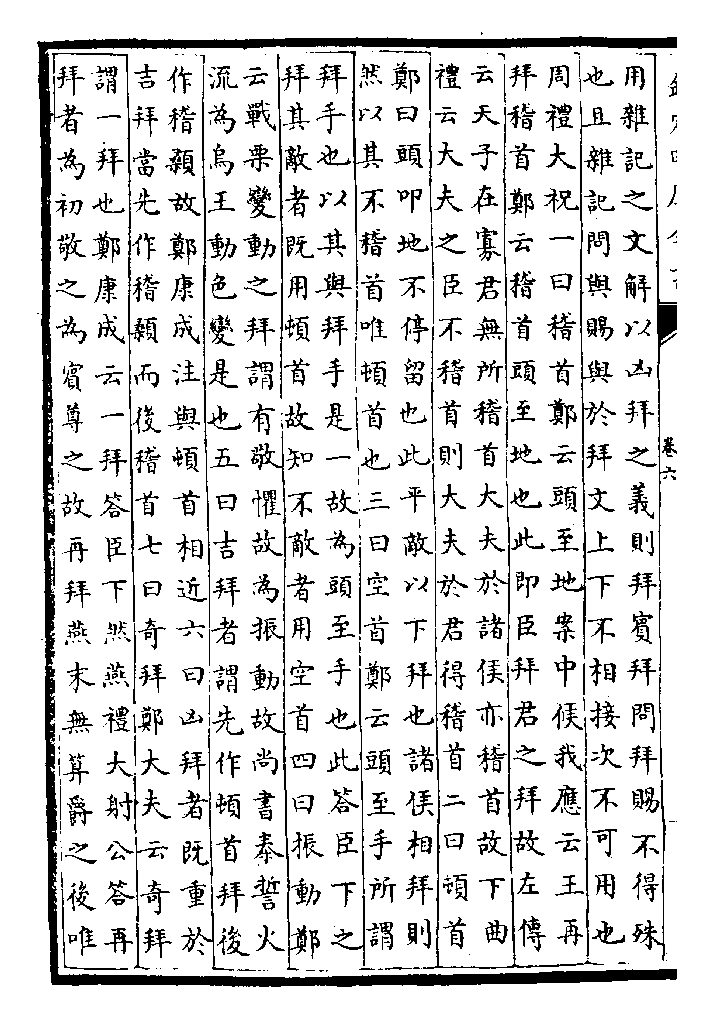 卷六
用雜記之文解以凶拜之義則拜賓拜問拜賜不得殊
也且雜記問與賜與於拜文上下不相接次不可用也
周禮大祝一曰稽首鄭云頭至地案中候我應云王再
拜稽首鄭云稽首頭至地也此即臣拜君之拜故左傳
云天子在寡君無所稽首大夫於諸侯亦稽首故下曲
禮云大夫之臣不稽首則大夫於君得稽首二曰頓首
鄭曰頭叩地不停留也此平敵以下拜也諸侯相拜則
然以其不稽首唯頓首也三曰空首鄭云頭至手所謂
拜手也以其與拜手是一故為頭至手也此答臣下之
拜其敵者既用頓首故知不敵者用空首四曰振動鄭
云戰栗變動之拜謂有敬懼故為振動故尚書泰誓火
流為烏王動色變是也五曰吉拜者謂先作頓首拜後
作稽顙故鄭康成注與頓首相近六曰凶拜者既重於
吉拜當先作稽顙而後稽首七曰奇拜鄭大夫云奇拜
謂一拜也鄭康成云一拜答臣下然燕禮大射公答再
拜者為初敬之為賓尊之故再拜燕末無算爵之後唯